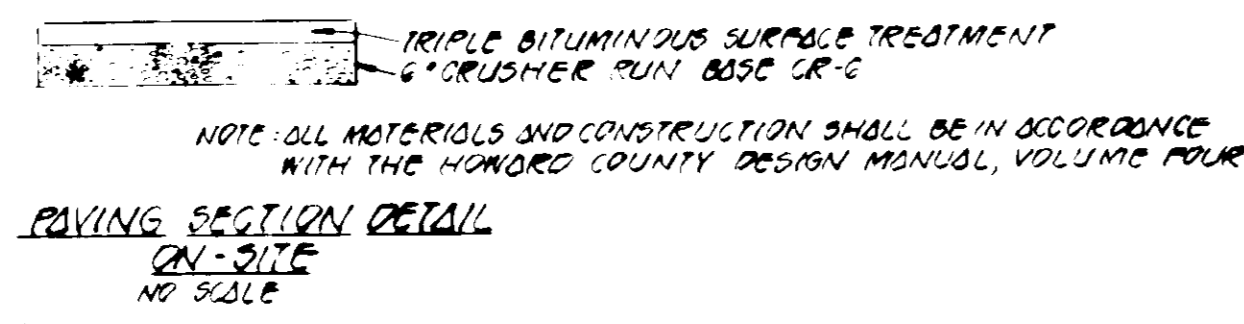 TRIPLE BITUMINOUS SURFACE TREATMENT
6" CRUSHER RUN BASE CR-6
NOTE: ALL MATERIALS AND CONSTRUCTION SHALL BE IN ACCORDANCE
WITH THE HOWARD COUNTY DESIGN MANUAL, VOLUME FOUR
PAVING SECTION DETAIL
ON-SITE
NO SCALE